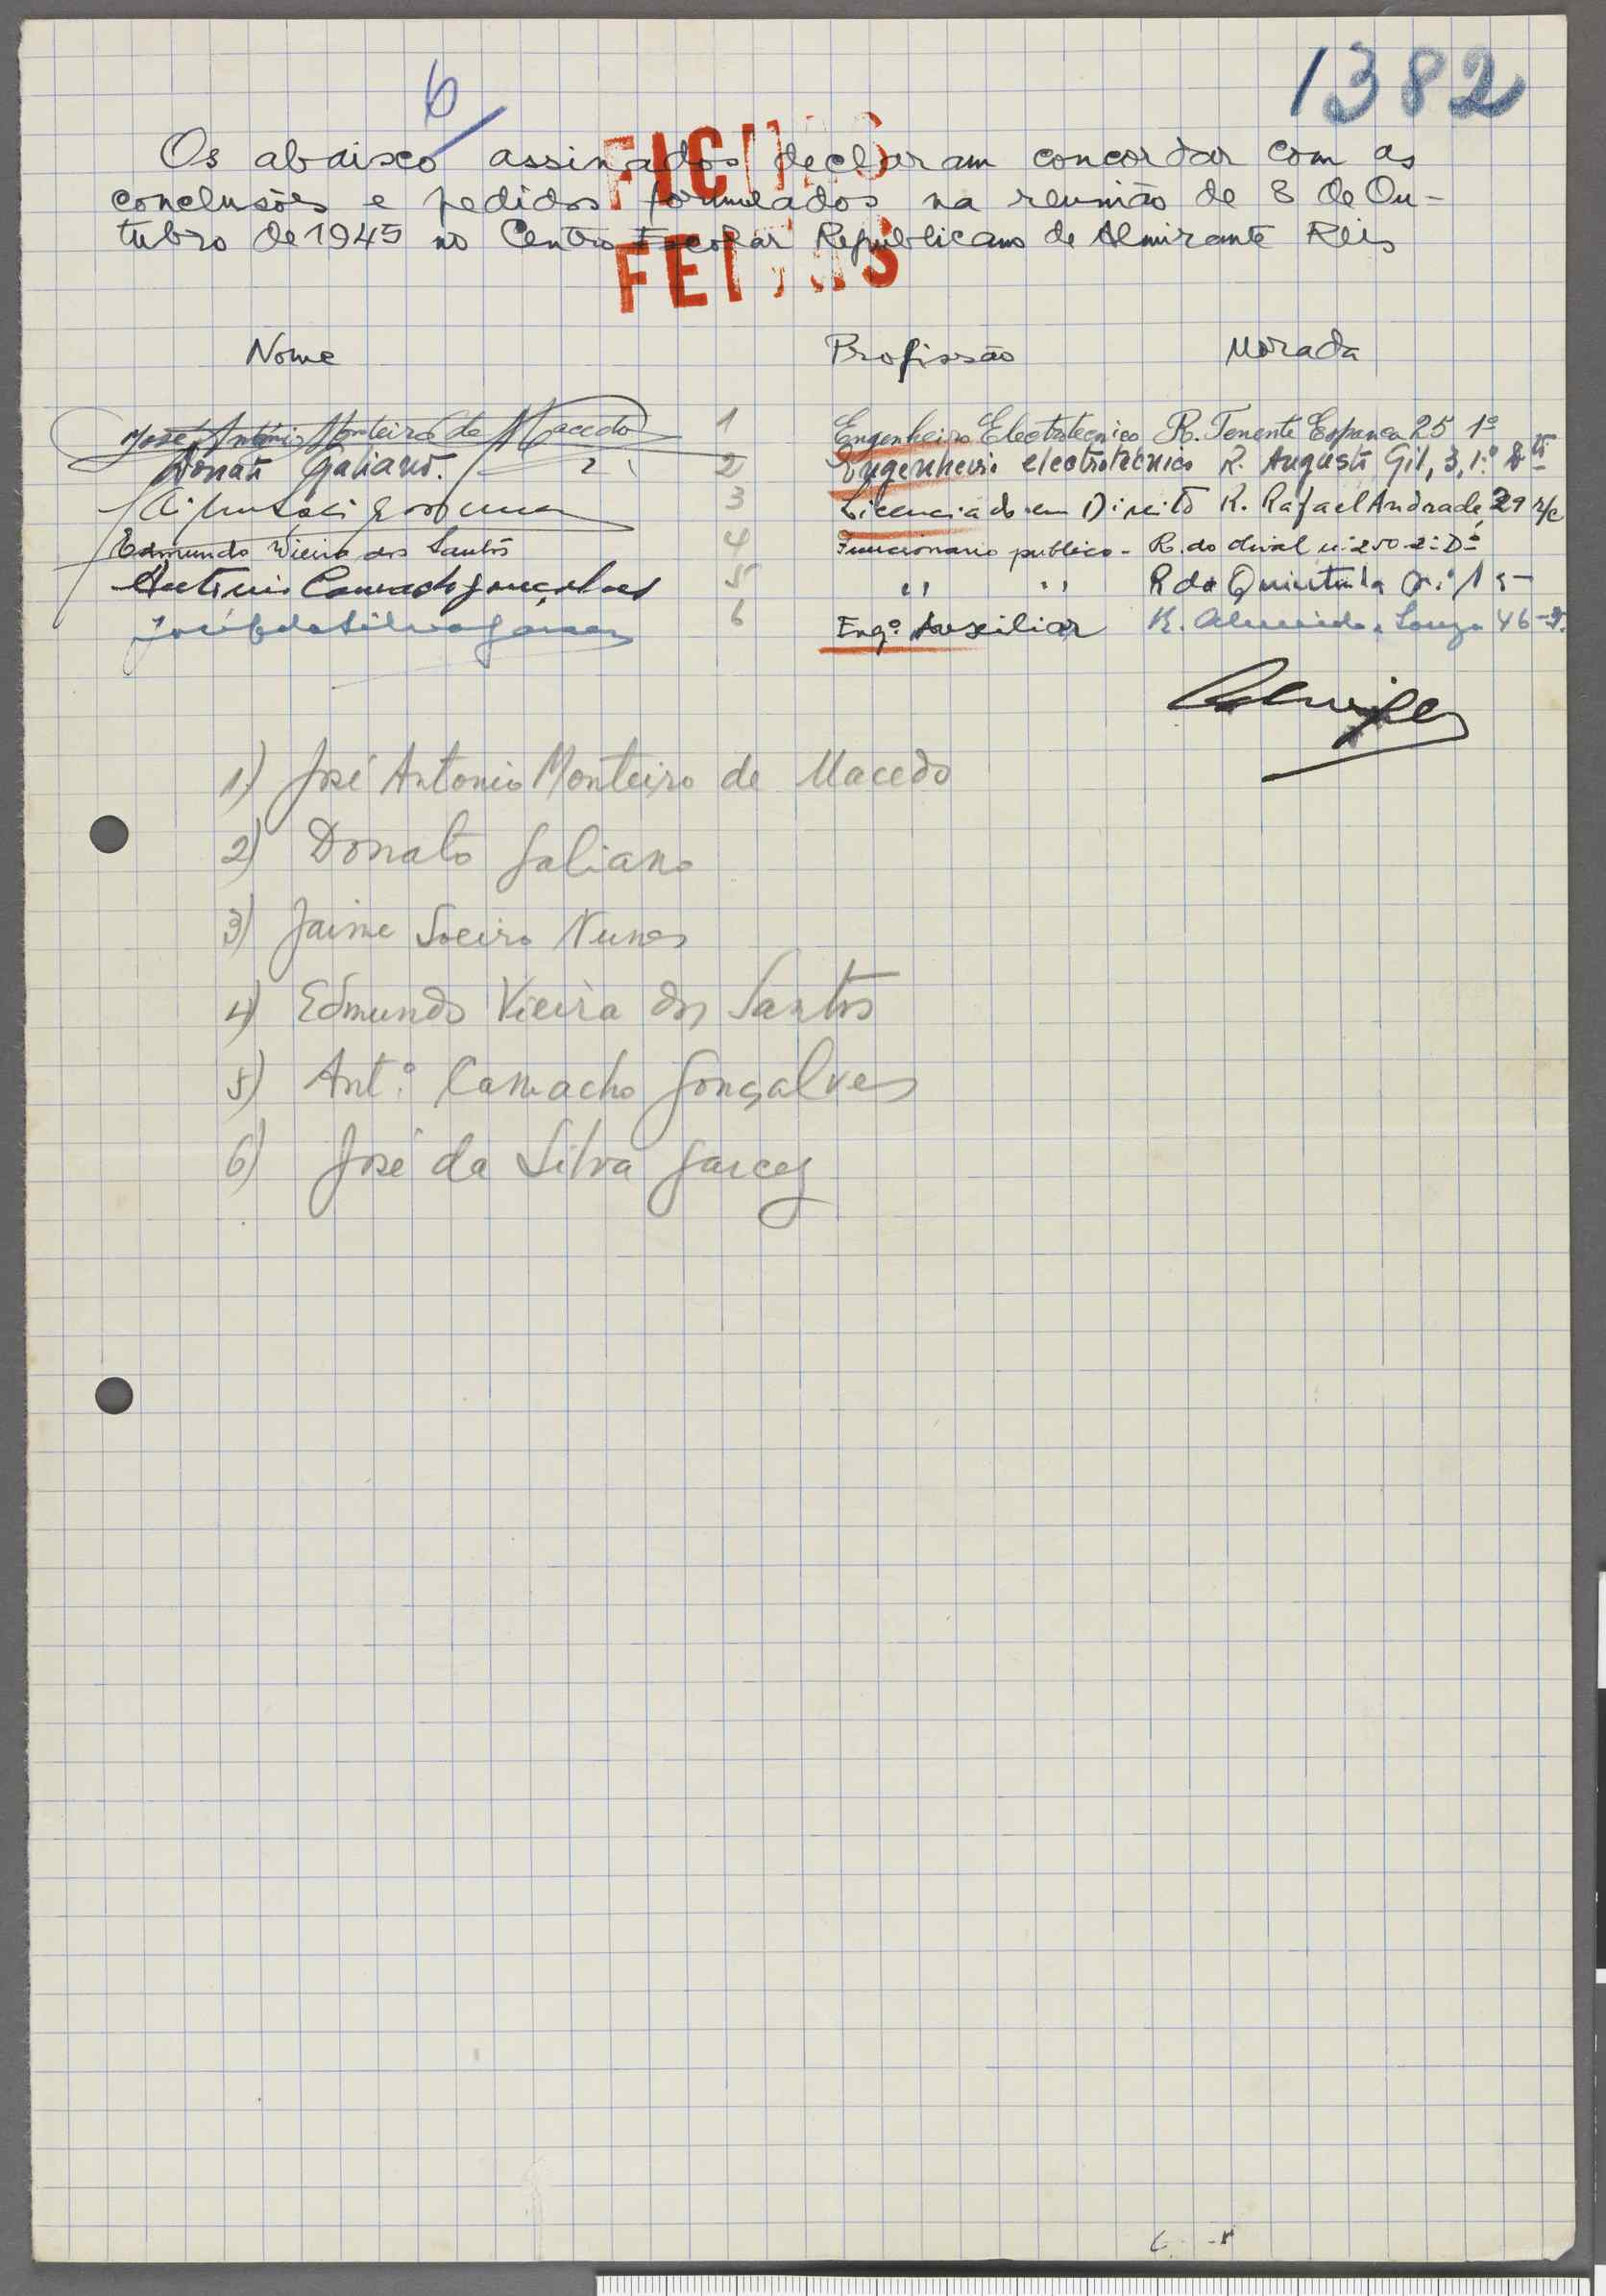 1382
6
Os abaixo assinados declaram concordar com as
conclusões e pedidos formulados na reunião de 8 de Ou-
tubro de 1945 no Centro Escolar Republicano de Almirante Reis
FICHAS
FEITAS
Nome Profissão Morada
José António Monteiro de Macedo 1 Engenheiro Electrotecnico R. Tenente Espanca 25 1º
Donato Galiano. 2 Engenheiro electrotecnico R. Augusto Gil, 3, 1.º
3 Licenciado em Direito R. Rafael Andrade, 29 r/c
Edmundo Vieira dos Santos 4 Funcionario publico - R. do nº 250-2º Dº
Antonio Camacho Gonçalves 5 " " R da Quintinha 15
José da Silva Garcez 6 Engº. Auxiliar R. Almeida e Souza 46
1) José Antonio Monteiro de Macedo
2) Donato Galiano
3) Jaime Soeiro Nunes
4) Edmundo Vieira dos Santos
5) Ant.º Camacho Gonçalves
6) José da Silva Garcez